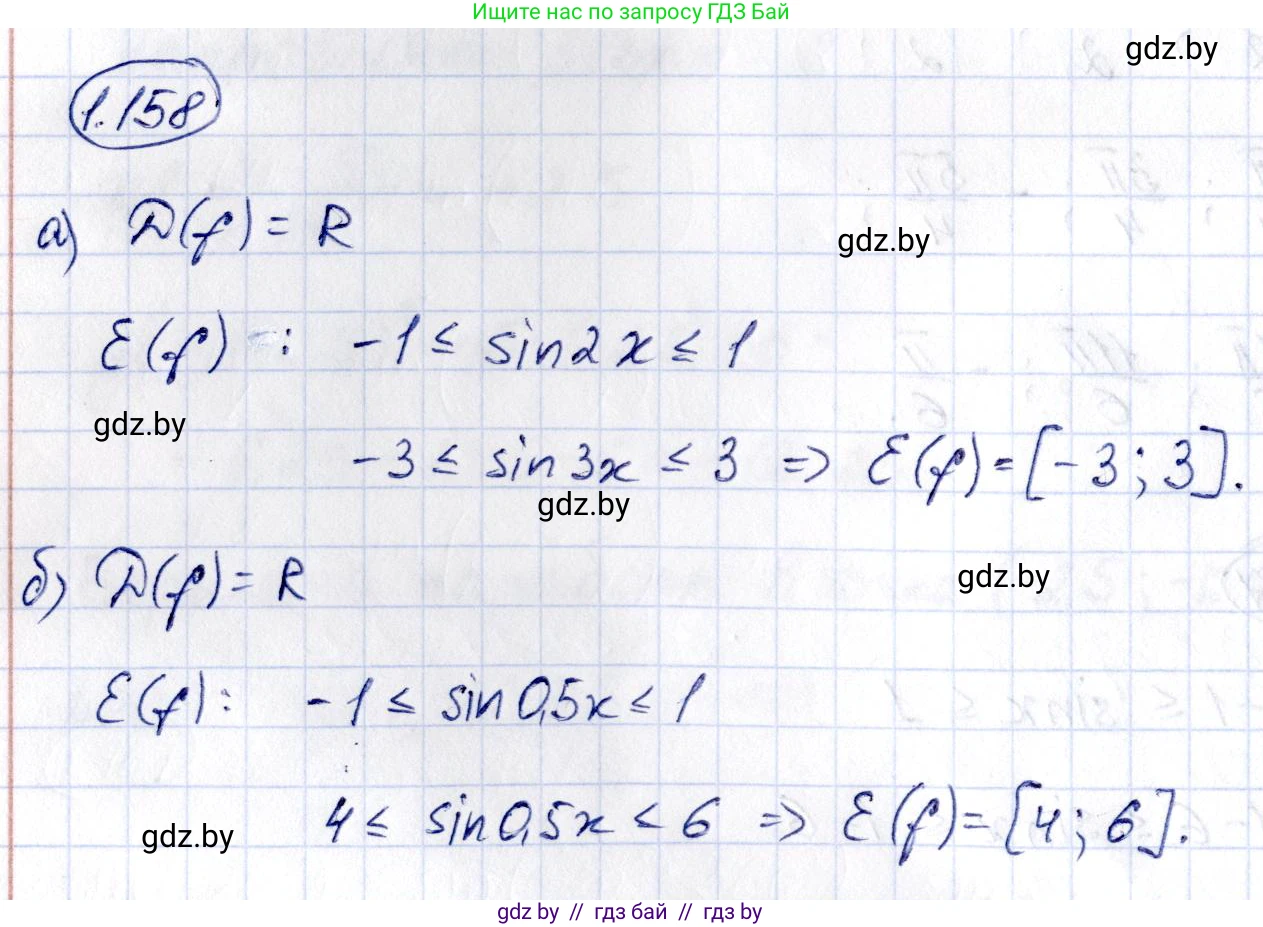 Ищите нас по запросу ГДЗ Бай
gdz.by
1.158
а) D(f) = R
gdz.by
E(f) : -1 ≤ sin2x ≤ 1
gdz.by
-3 ≤ sin3x ≤ 3 => E(f) = [-3; 3].
gdz.by
б) D(f) = R
gdz.by
E(f): -1 ≤ sin0,5x ≤ 1
4 ≤ sin0,5x ≤ 6 => E(f) = [4; 6].
gdz.by
gdz.by // гдз бай // гдз by